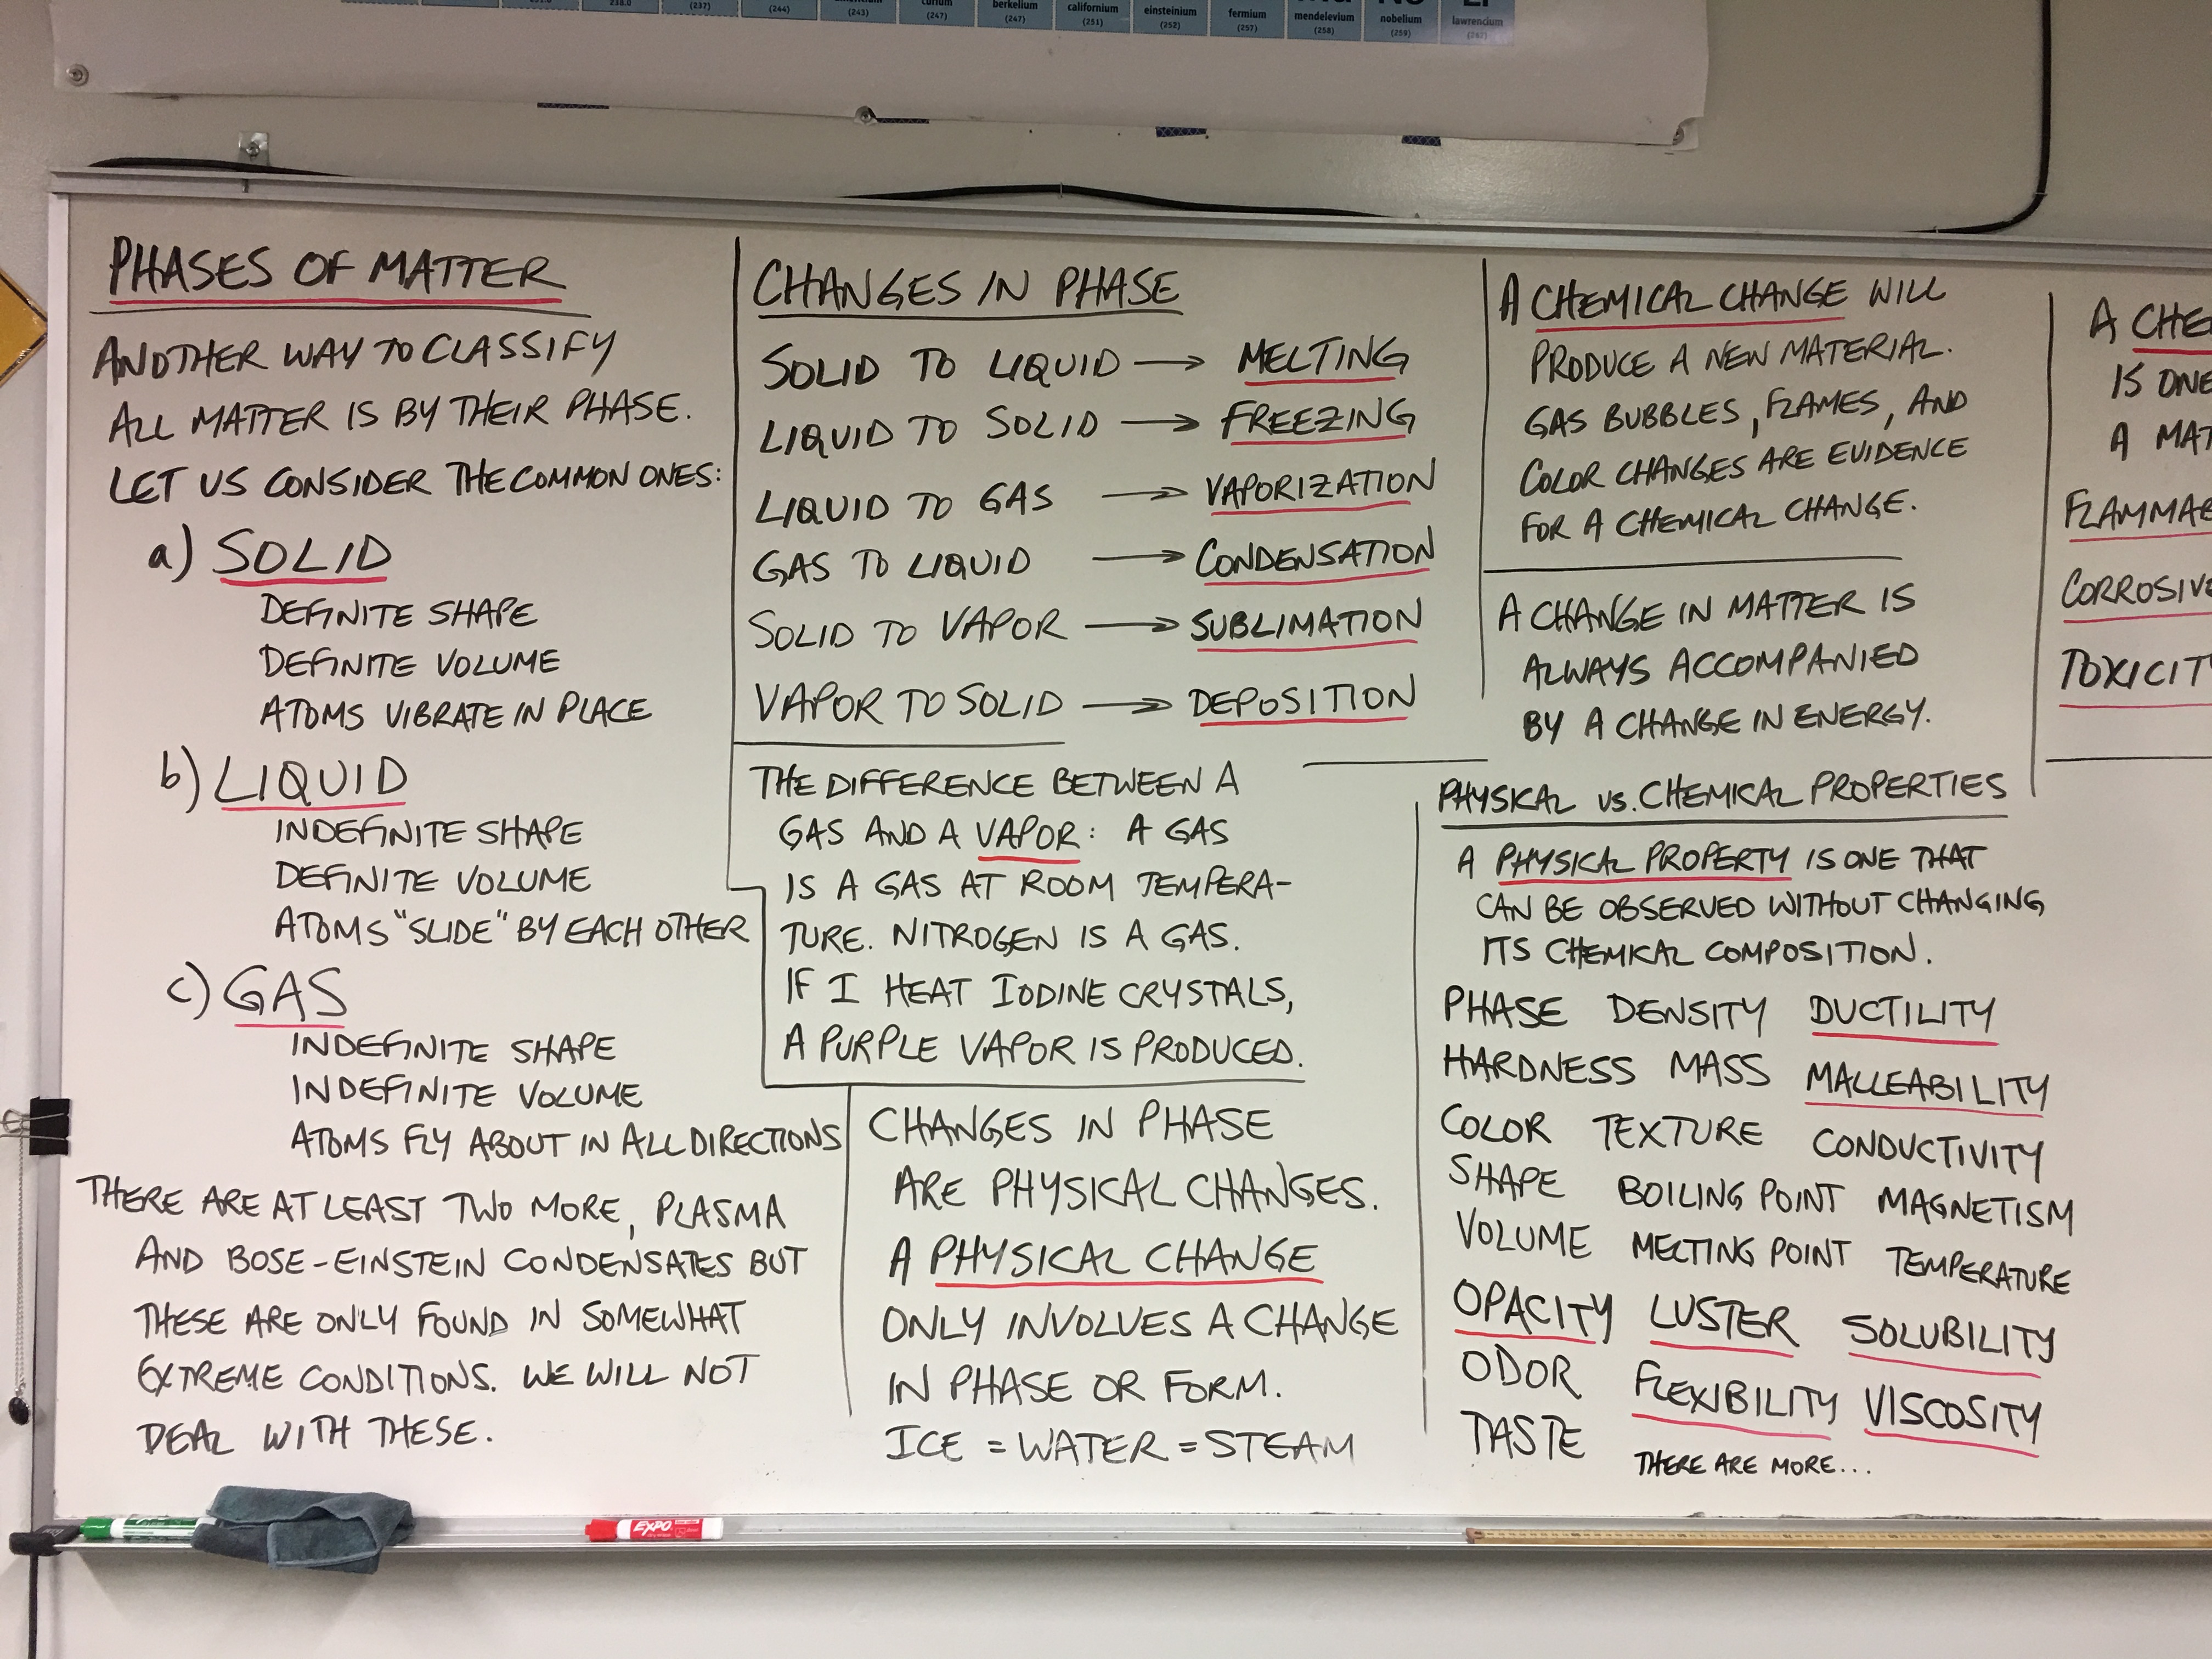 (237)
(244)
(243)
curium
(247)
berkelium
(247)
californium
(251)
einsteinium
(252)
fermium
(257)
mendelevium
(258)
No
nobelium
(259)
Lr
lawrencium
(262)
PHASES OF MATTER
ANOTHER WAY TO CLASSIFY
ALL MATTER IS BY THEIR PHASE.
LET US CONSIDER THE COMMON ONES:
a) SOLID
DEFINITE SHAPE
DEFINITE VOLUME
ATOMS VIBRATE IN PLACE
b) LIQUID
INDEFINITE SHAPE
DEFINITE VOLUME
ATOMS "SLIDE" BY EACH OTHER
c) GAS
INDEFINITE SHAPE
INDEFINITE VOLUME
ATOMS FLY ABOUT IN ALL DIRECTIONS
THERE ARE AT LEAST TWO MORE, PLASMA
AND BOSE-EINSTEIN CONDENSATES BUT
THESE ARE ONLY FOUND IN SOMEWHAT
EXTREME CONDITIONS. WE WILL NOT
DEAL WITH THESE.
CHANGES IN PHASE
SOLID TO LIQUID → MELTING
LIQUID TO SOLID → FREEZING
LIQUID TO GAS → VAPORIZATION
GAS TO LIQUID → CONDENSATION
SOLID TO VAPOR → SUBLIMATION
VAPOR TO SOLID → DEPOSITION
THE DIFFERENCE BETWEEN A
GAS AND A VAPOR: A GAS
IS A GAS AT ROOM TEMPERA-
TURE. NITROGEN IS A GAS.
IF I HEAT IODINE CRYSTALS,
A PURPLE VAPOR IS PRODUCED.
CHANGES IN PHASE
ARE PHYSICAL CHANGES.
A PHYSICAL CHANGE
ONLY INVOLVES A CHANGE
IN PHASE OR FORM.
ICE = WATER = STEAM
A CHEMICAL CHANGE WILL
PRODUCE A NEW MATERIAL.
GAS BUBBLES, FLAMES, AND
COLOR CHANGES ARE EVIDENCE
FOR A CHEMICAL CHANGE.
A CHANGE IN MATTER IS
ALWAYS ACCOMPANIED
BY A CHANGE IN ENERGY.
PHYSICAL vs. CHEMICAL PROPERTIES
A PHYSICAL PROPERTY IS ONE THAT
CAN BE OBSERVED WITHOUT CHANGING
ITS CHEMICAL COMPOSITION.
PHASE DENSITY DUCTILITY
HARDNESS MASS MALLEABILITY
COLOR TEXTURE CONDUCTIVITY
SHAPE BOILING POINT MAGNETISM
VOLUME MELTING POINT TEMPERATURE
OPACITY LUSTER SOLUBILITY
ODOR FLEXIBILITY VISCOSITY
TASTE THERE ARE MORE...
A CHE
IS ONE
A MAT
FLAMMAB
CORROSIV
TOXICIT
EXPO